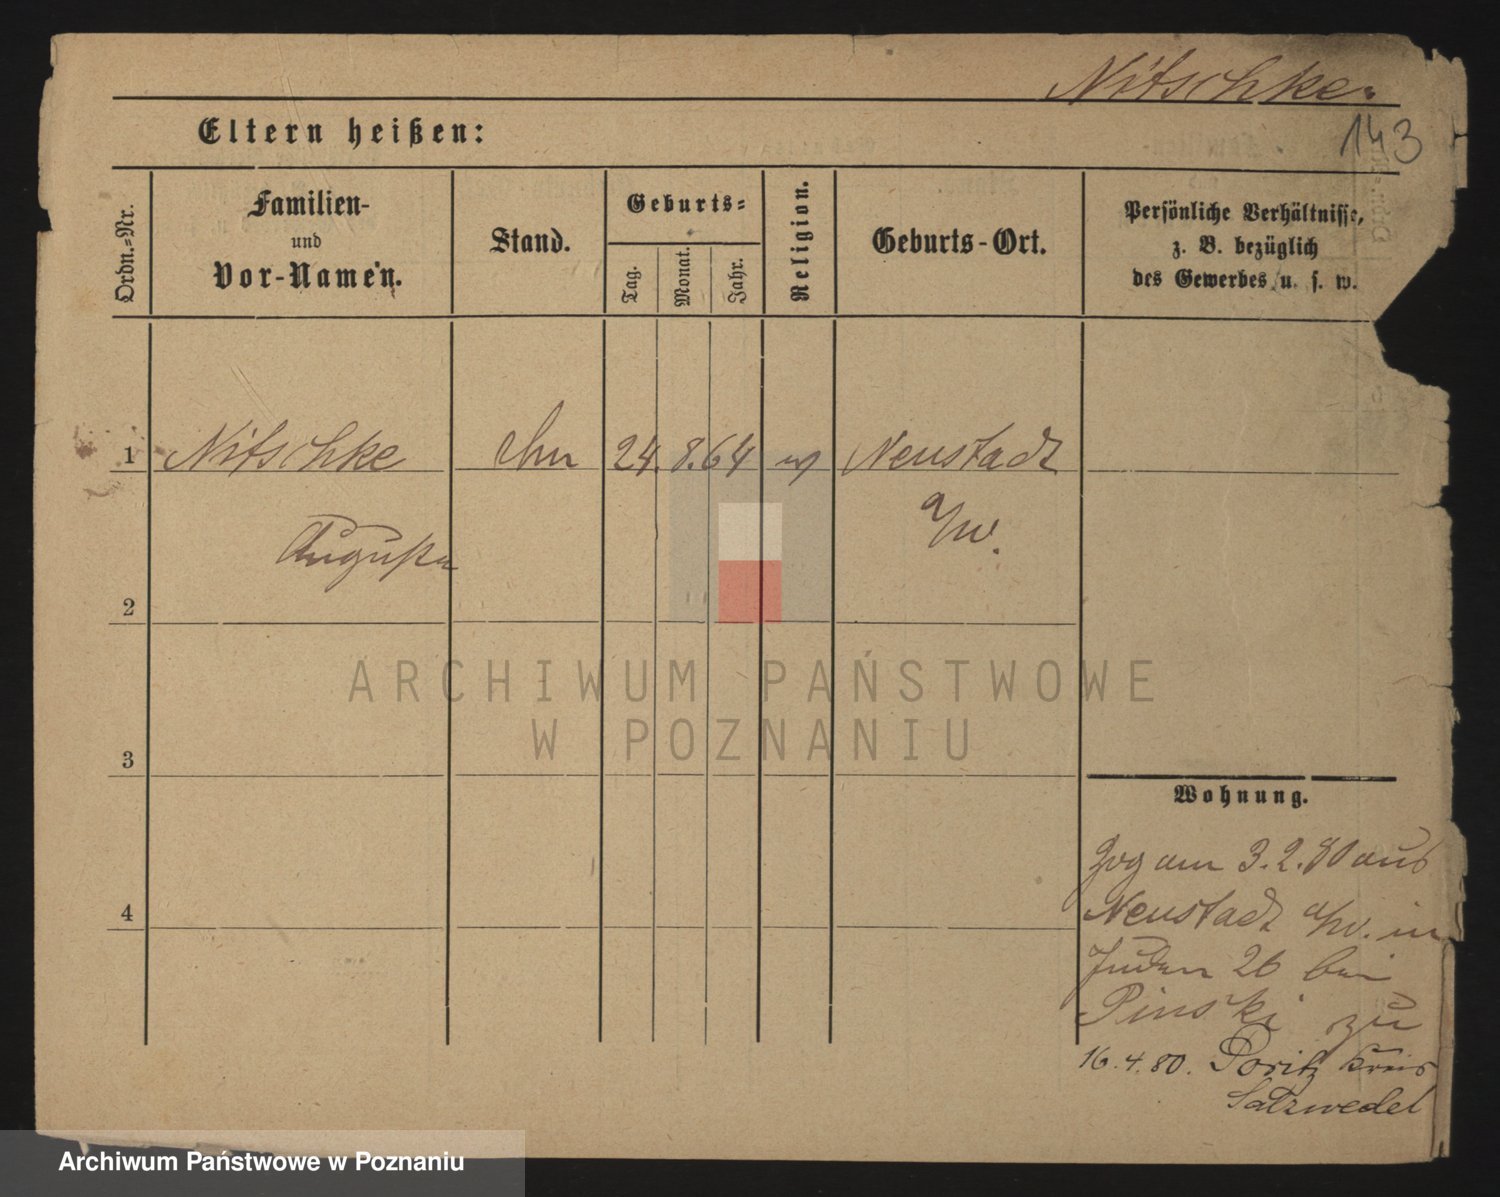 Nitschke.
143
Eltern heißen:
Ordn.-Nr.
Familien-
und
Vor-Namen.
Stand.
Geburts-
Tag.
Monat.
Jahr.
Religion.
Geburts-Ort.
Persönliche Verhältnisse,
z. B. bezüglich
des Gewerbes u. s. w.
1 Nitschke 24. 8. 64 Neustadt
Auguste a/W.
2
3
4
ARCHIWUM PAŃSTWOWE
W POZNANIU
Wohnung.
Zog am 3.2.80 aus
Neustadt a/W. in
Juden 26 bei
Pinski zu
16.4.80. Poritz Kreis
Salzwedel
Archiwum Państwowe w Poznaniu